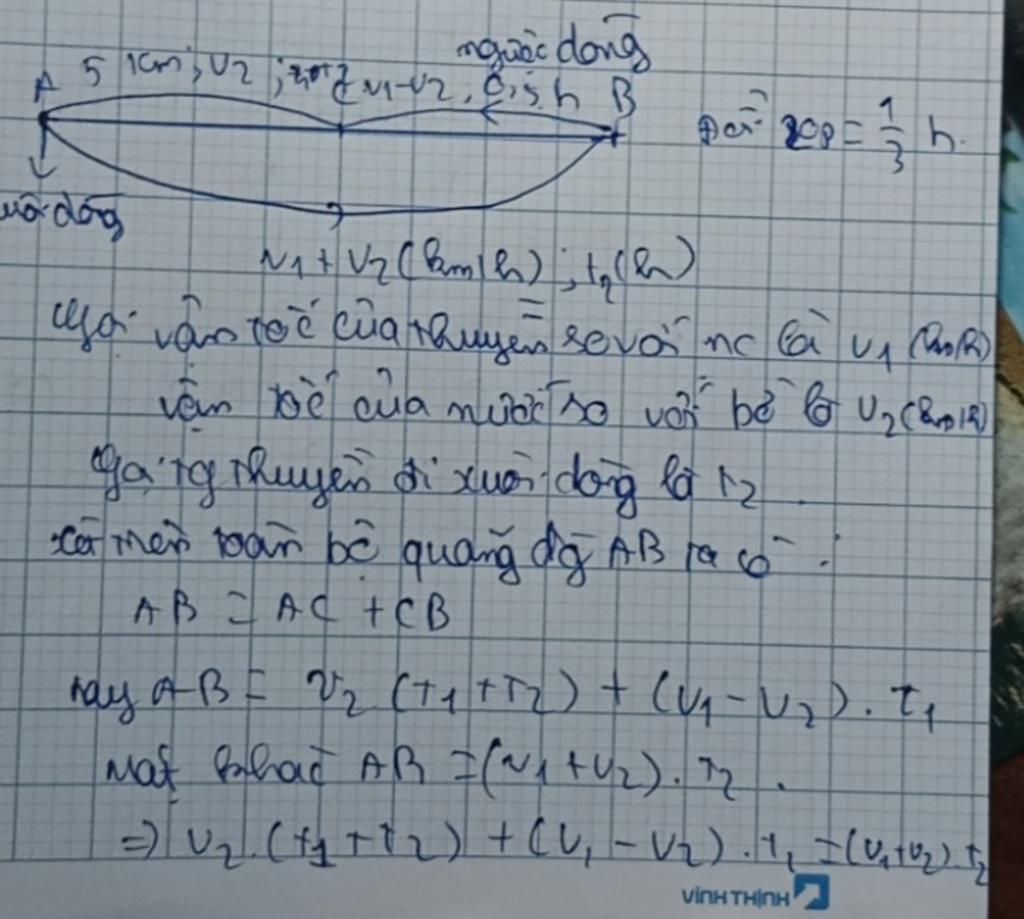 ngược dòng
A 5 km; v2; v1-v2, 0,5 h B
Đổi 20p = 1/3 h.
xuôi dòng
v1 + v2 (km/h); t2 (h)
Gọi vận tốc của thuyền so với nc là v1 (km/h)
vận tốc của nước so với bờ là v2 (km/h)
Gọi tg thuyền đi xuôi dòng là t2
xét trên toàn bộ quãng đg AB ta có :
AB = AC + CB
hay AB = v2 (t1 + t2) + (v1 - v2) . t1
Mặt khác AB = (v1 + v2) . t2 .
=> v2 . (t1 + t2) + (v1 - v2) . t1 = (v1 + v2) t2
VĨNH THỊNH